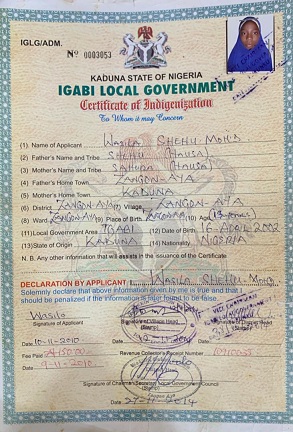 IGLG/ADM.
Nº 0003053
KADUNA STATE OF NIGERIA
IGABI LOCAL GOVERNMENT
Certificate of Indigenization
To Whom it may Concern
(1) Name of Applicant Wasila SHEHU MOH'D
(2) Father's Name and Tribe SHEHU (HAUSA)
(3) Mother's Name and Tribe (HAUSA)
(4) Father's Home Town ZANGON-AYA
(5) Mother's Home Town KADUNA
(6) District ZANGON-AYA (7) Village ZANGON-AYA
(8) Ward ZANGON-AYA (9) Place of Birth (10) Age
(11) Local Government Area IGABI (12) Date of Birth 16-April 2002
(13) State of Origin KADUNA (14) Nationality NIGERIA
N. B. Any other information that will assists in the issuance of the Certificate
DECLARATION BY APPLICANT: I, Wasila SHEHU MOH'D
Solemnly declare that above information given by me is true and that I
should be penalized if the information is later found to be false.
Wasila
Signature of Applicant
Signature of Village Head
(Stamp)
Date 10-11-2010
Fee Paid
Revenue Collector's Receipt Number
9-11-2010
Signature of Chairman/Secretary Local Government Council
(Stamp)
Date 27-11-2014